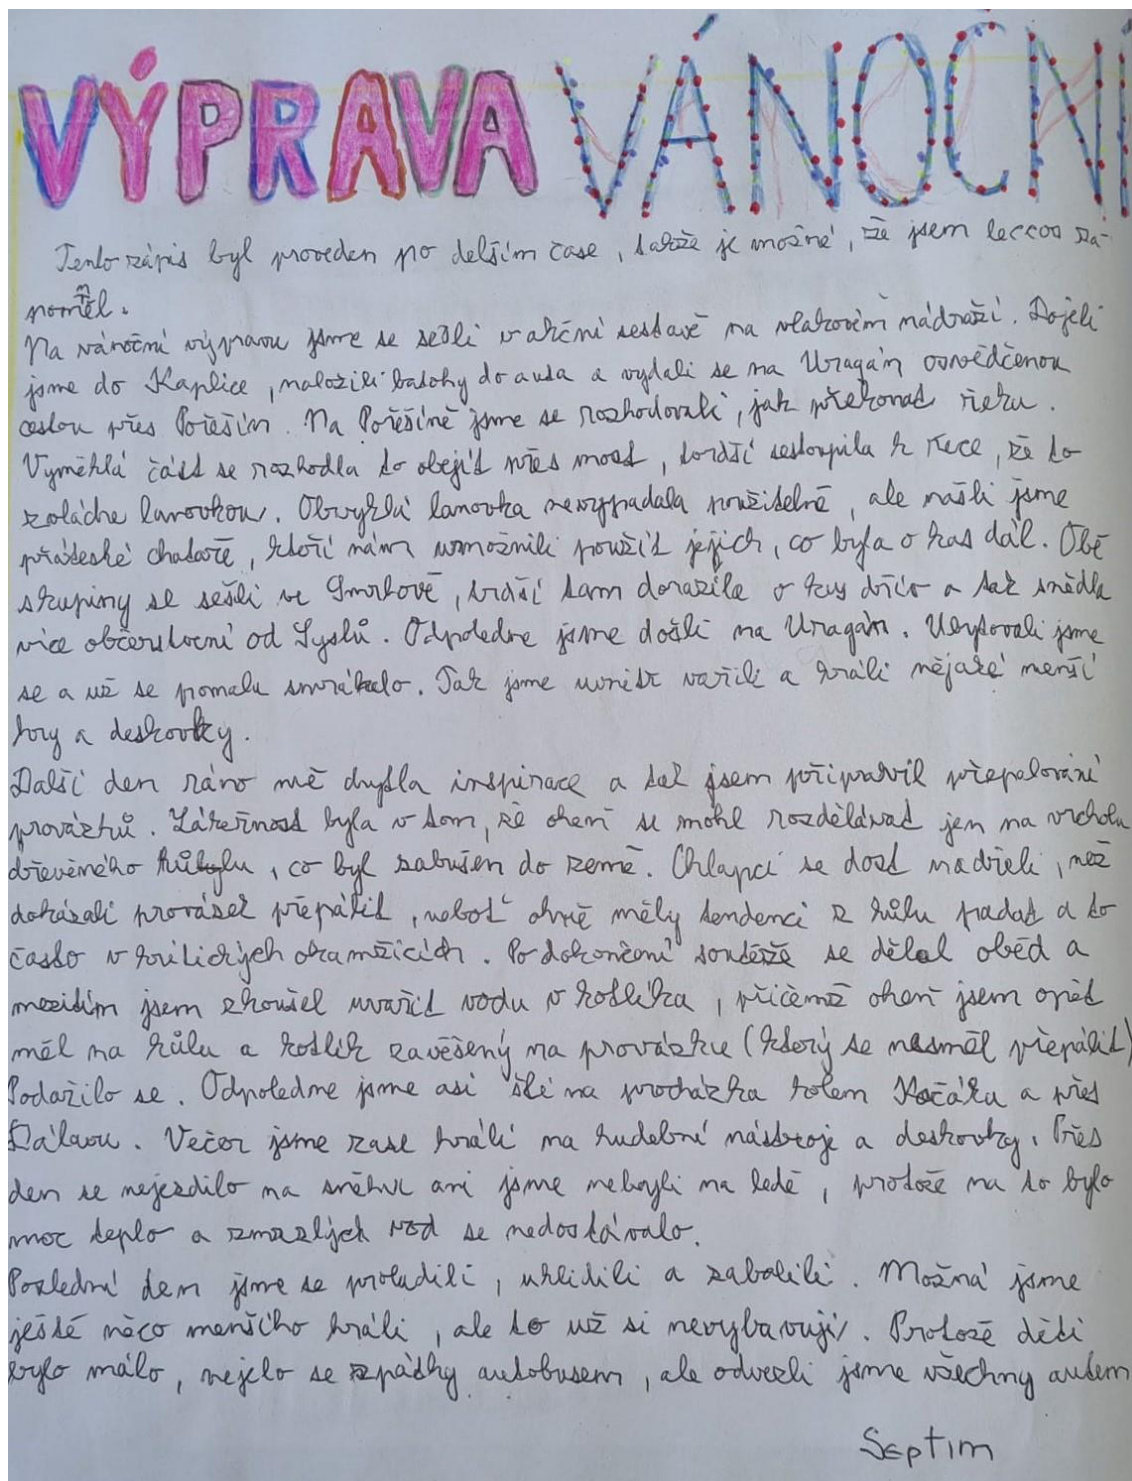 VÝPRAVA VÁNOČNÍ
Tento zápis byl proveden po delším čase, takže je možné, že jsem leccos za-
pomněl.
Na vánoční výpravu jsme se sešli v akční sestavě na vlakovém nádraží. Dojeli
jsme do Kaplice, naložili batohy do auta a vydali se na Uragán osvědčenou
cestou přes Pořešín. Na Pořešíně jsme se rozhodovali, jak překonat řeku.
Vyměklá část se rozhodla to obejít přes most, tvrdší sestoupila k řece, že to
zvládne lanovkou. Obvyklá lanovka nevypadala použitelně, ale našli jsme
přátelské chataře, kteří nám umožnili použít jejich, co byla o kus dál. Obě
skupiny se sešli ve Smrhově, tvrdší tam dorazila o kus dřív a tak snědla
více občerstvení od Syslů. Odpoledne jsme došli na Uragán. Ubytovali jsme
se a už se pomalu smrákalo. Tak jsme uvnitř vařili a hráli nějaké menší
hry a deskovky.
Další den ráno mě chytla inspirace a tak jsem připravil přepalování
provázků. Zákeřnost byla v tom, že oheň se mohl rozdělávat jen na vrcholu
dřevěného kůlu, co byl zabušen do země. Chlapci se dost nadřeli, než
dokázali provázek přepálit, neboť ohně měly tendenci z kůlu padat a to
často v kritických okamžicích. Po dokončení soutěže se dělal oběd a
mezitím jsem zkoušel uvařit vodu v kotlíku, přičemž oheň jsem opět
měl na kůlu a kotlík zavěšený na provázku (který se nesměl přepálit)
Podařilo se. Odpoledne jsme asi šli na procházku kolem Kočáku a přes
Dálavu. Večer jsme zase hráli na hudební nástroje a deskovky. Přes
den se nejezdilo na sněhu ani jsme nebyli na ledě, protože na to bylo
moc teplo a zmrzlých vod se nedostávalo.
Poslední den jsme se probudili, uklidili a zabalili. Možná jsme
ještě něco menšího hráli, ale to už si nevybavuji. Protože dětí
bylo málo, nejelo se zpátky autobusem, ale odvezli jsme všechny autem
Septim